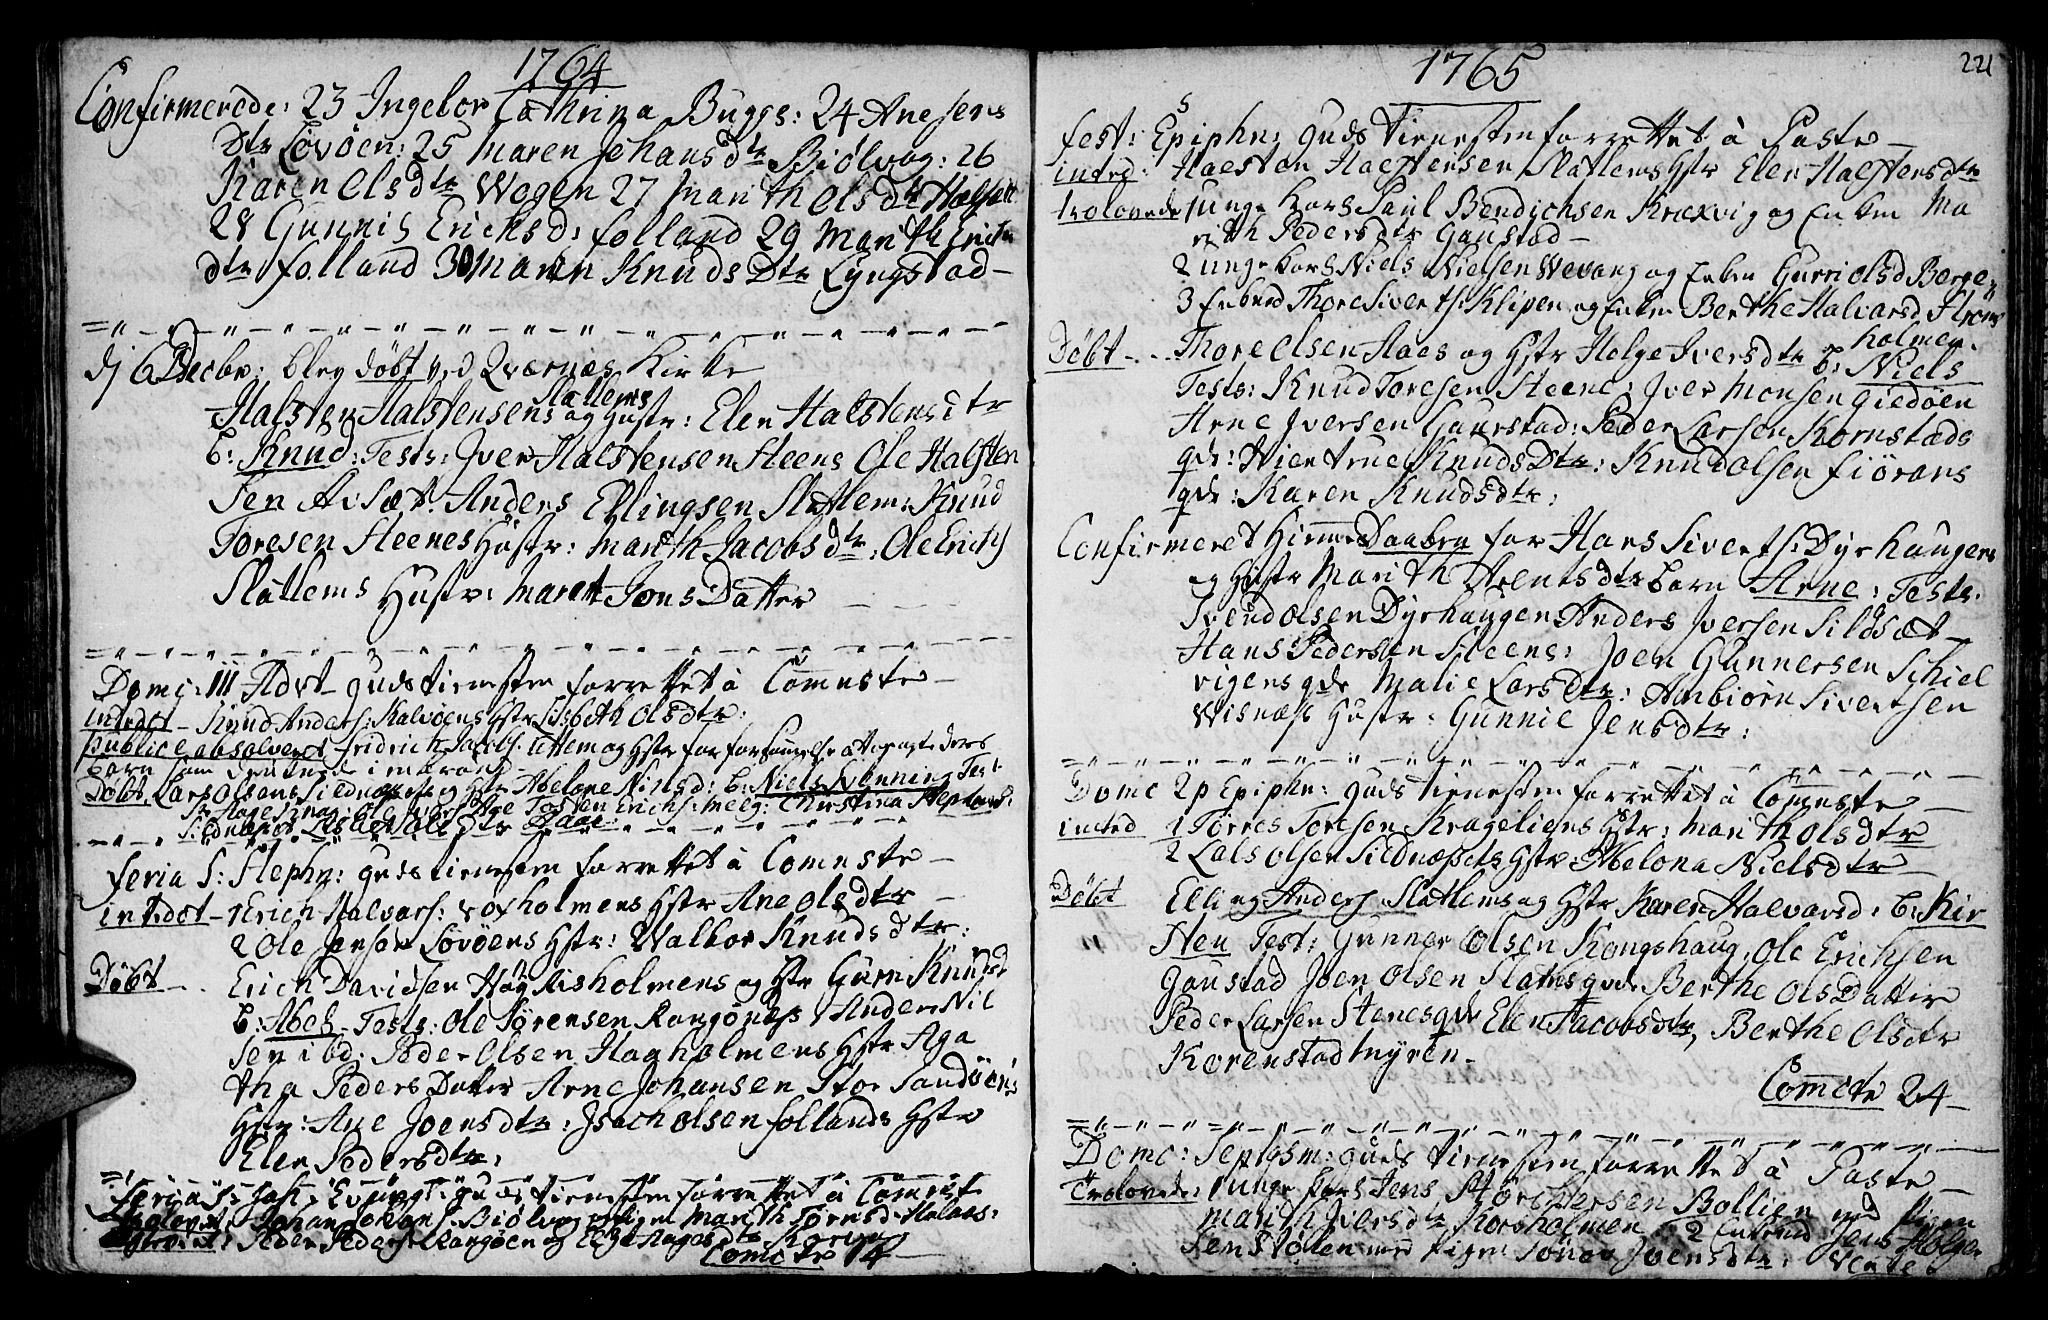 1764
Confirmerede: 23 Ingebor Cathrina Buggs: 24 Ane Jens
Dtr Løvøen: 25 Maren Johansdtr Biølvog: 26
Karen Olsdtr Wogen 27 Marith Olsdtr
28 Gunnis Erichsd: Folland 29 Marith Erich
dtr Folland 30 Maren Knuds Dtr Lyngstad
dj 6 Decbr: blev døbt ved Qværnæs Kirke
Slatlems
Halsten Halstensens og Hustr: Elen Halstensdtr
b: Knud: Tests: Iver Halstensen Steens Ole Halsten
sen Aisæt. Anders Ellingsen Slatlem: Knud
Toresen Steenes Hustr: Marith Jacobsdtr: Ole Erichs
Slatlems Hustr: Maret Jons Datter
Domc: III Advt Gudstienesten forrettet à Comnste
introdct Knud Anders: Kalvøens Hstr Lisbeth Olsdtr:
publice absolveret Fridrich Jacobs: og Hstr for
børn som
Døbt. Lars Olsens Sildnæssets og Hstr Abelone Nielsd: b: Niels Test:
Feria S: Steph: Gudstienesten forrettet à Comnste
introdct 1 Erich Halvars: Roxholmens Hstr Ane Olsdtr
2 Ole Jensen Løvøens Hstr: Walbor Knudsdtr:
Døbt Erich Davidsen Høg Aisholmens og Hstr Gurri Knudsd
b: Abel Tests: Ole Sørensen Rangønes Anders Nil
sen ibd: Peder Olsen Haaholmens Hstr Aga
tha Peders Datter Arne Johansen Stor Sandøens
Hstr: Ane Joensdtr: Isach Olsen Follands Hstr
Elen Pedersdtr:
Feria S: Joh: Evang: Gudstienesten forrettet à Comnste
Trolovet: Johan Johans: Biølvog og Pigen Marith
Peder Peders: Rangøen og
Comctr 14
1765
221
Fest: Epiphn: Gudstienesten forrettet à Paste
intrd: Halsten Halstensen Slatlems Hstr Elen Halstensdtr
trolovede 1 unge Karl Paul Bendichsen Kraxvig og Enken Ma
rith Pedersdtr Gaustad
2 unge Karl Niels Nielsen Wevang og Enken Gurri Olsd Berge
3 Enkmd Thore Siverts: Klipen og Enken Berthe Halvarsd Strøms
holmen.
Døbt Thore Olsen Haes og Hstr Helge Iversdtr b: Niels
Tests: Knud Toresen Steene: Iver Monsen Giedøen
Arne Iversen Gaustad: Peder Larsen Kornstads
qde: Giertrue Knuds Dtr: Knud Olsen Fiørans
qde: Karen Knudsdtr:
Confirmeret Hiemme Daaben for Hans Siverts: Dyrhaugens
og Hstr Marith Arentsdtr barn Arne: Tests:
Svend Olsen Dyrhaugen Anders Iversen Sildsæt
Hans Pedersen Steens: Joen Gunnersen Schiel
vigens qde Malie Lars Dtr: Anbiørn Sivertsen
Wisnæs Hustr: Gunnil Jensdtr:
Domc 2 p Epiphn: Gudstienesten forrettet à Comnste
introd 1 Torres Toresen Krageliens Hstr: Marith Olsdtr
2 Lars Olsen Sildnæssets Hstr Abelona Nielsdtr
Døbt Elling Anders: Slatlems og Hstr Karen Halvarsd: b: Kir
sten Test: Gunner Olsen Kongshaug, Ole Erichsen
Gaustad Joen Olsen Slatems qde Berthe Ols Datter
Peder Larsen Stenes qde Elen Jacobsdtr, Berthe Olsdtr
Korenstadmyren
Comctr 24
Domc: Septgsm: Gudstienesten forrettet à Paste
Trolovede: 1 unge Karl Jens Bollien med Pigen
Marith Iversdtr Korsholmen 2 Enkmd Jens Holgr
sen Stølen med Pigen Joensdtr: